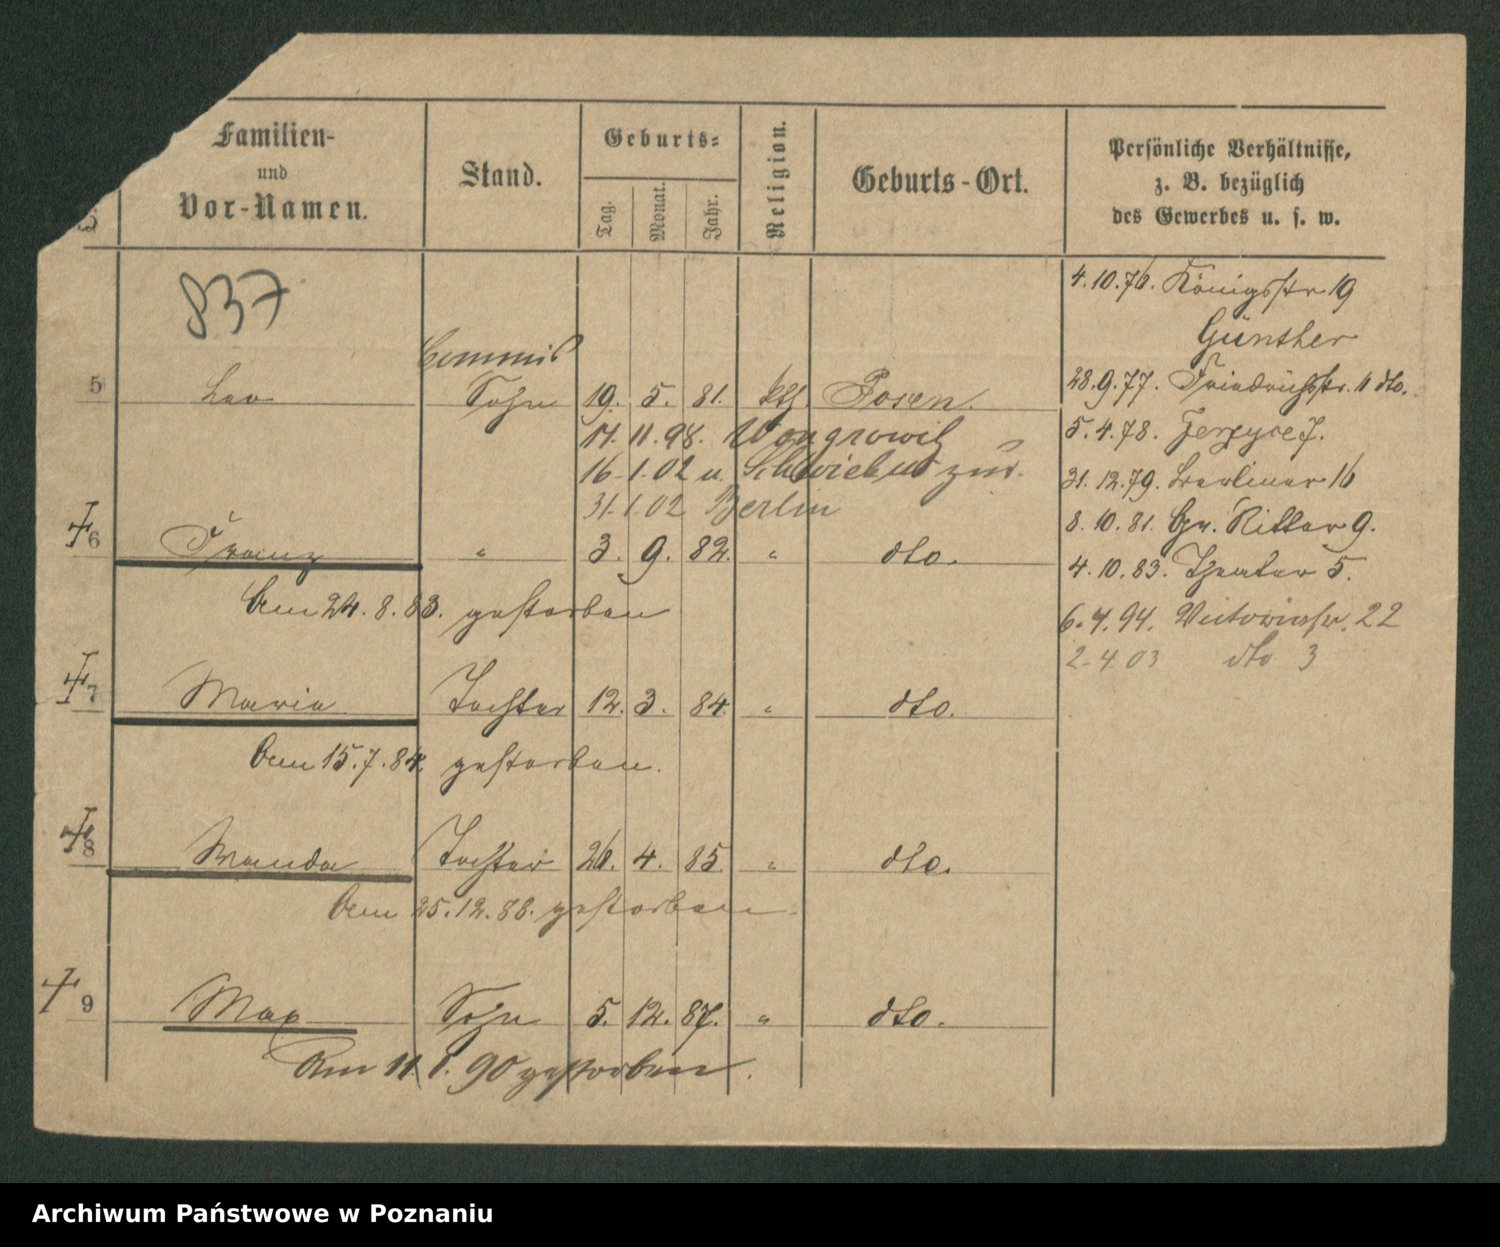 Familien-
und
Vor-Namen.
Stand.
Geburts-
Tag.
Monat.
Jahr.
Religion.
Geburts-Ort.
Persönliche Verhältnisse,
z. B. bezüglich
des Gewerbes u. s. w.
837
4.10.76. Königsstr 19
Günther
Commis
5 Leo Sohn 19. 5. 81. kth. Posen.
28.9.77. Friedrichsstr. 11 dto.
11.98. Wongrowitz
5.4.78. Jerzyce 7.
16.1.02 u. Schwiebus zur.
31.12.79. Berliner 16
31.1.02 Berlin
8.10.81. Gr. Ritter 9.
6 Franz " 3. 9. 82. " dto.
4.10.83. Theater 5.
Am 24.8.83. gestorben
6.4.94. Victoriastr. 22
2.4.03 dto 3
7 Maria Tochter 12. 3. 84. " dto.
Am 15.7.84. gestorben.
8 Wanda Tochter 26. 4. 85. " dto.
Am 25.12.88. gestorben.
9 Max Sohn 5. 12. 87. " dto.
Am 11.1.90 gestorben.
Archiwum Państwowe w Poznaniu